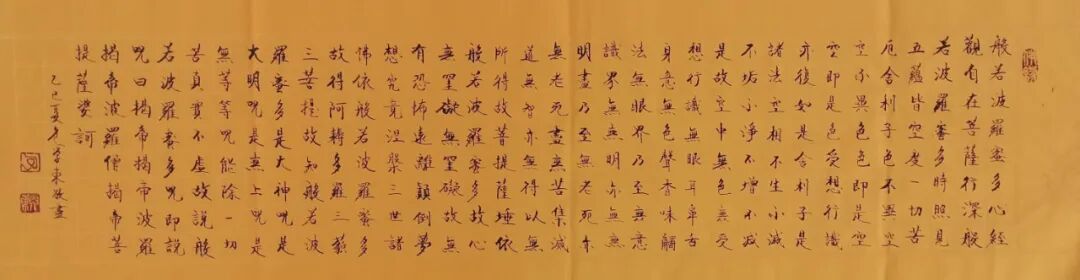 般若波羅蜜多心經
觀自在菩薩行深般
若波羅蜜多時照見
五蘊皆空度一切苦
厄舍利子色不異空
空不異色色即是空
空即是色受想行識
亦復如是舍利子是
諸法空相不生不滅
不垢不淨不增不減
是故空中無色無受
想行識無眼耳鼻舌
身意無色聲香味觸
法無眼界乃至無意
識界無無明亦無無
明盡乃至無老死亦
無老死盡無苦集滅
道無智亦無得以無
所得故菩提薩埵依
般若波羅蜜多故心
無罣礙無罣礙故無
有恐怖遠離顛倒夢
想究竟涅槃三世諸
佛依般若波羅蜜多
故得阿耨多羅三藐
三菩提故知般若波
羅蜜多是大神咒是
大明咒是無上咒是
無等等咒能除一切
苦真實不虛故說般
若波羅蜜多咒即說
咒曰揭帝揭帝波羅
揭帝波羅僧揭帝菩
提薩婆訶
乙巳夏